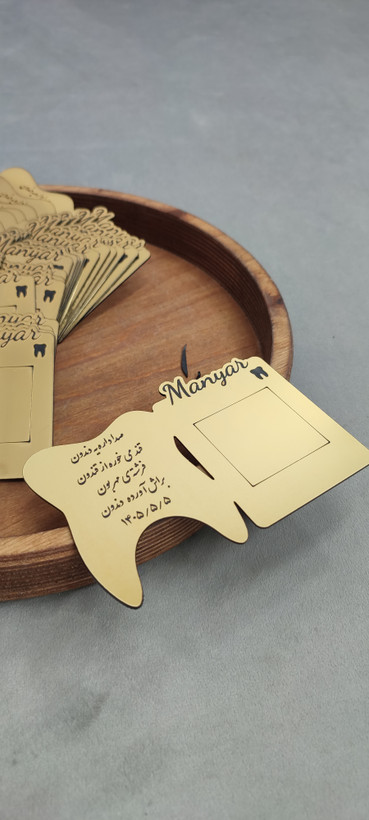 Manyar
مدا داره یه دندون
قدمی خوره از قندون
فرشته‌ی مهربون
براش آورده دندون
۱۴۰۵/۵/۵
Manyar
Manyar